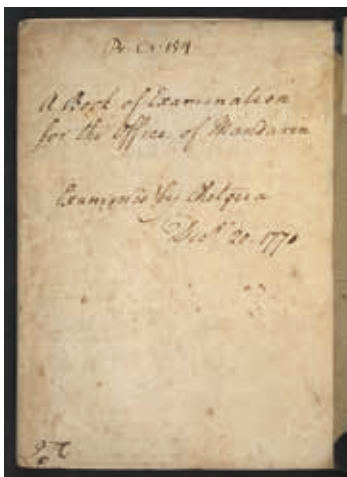 A Book of Examination
for the Office of Mandarin
Examined by Chetqua
Decr. 20. 1770